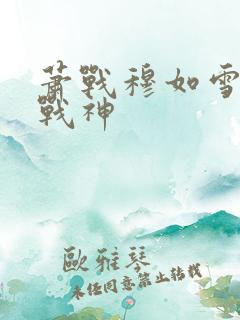 蕭戰穆如雪
戰神
歐雅琴
未經同意禁止轉載